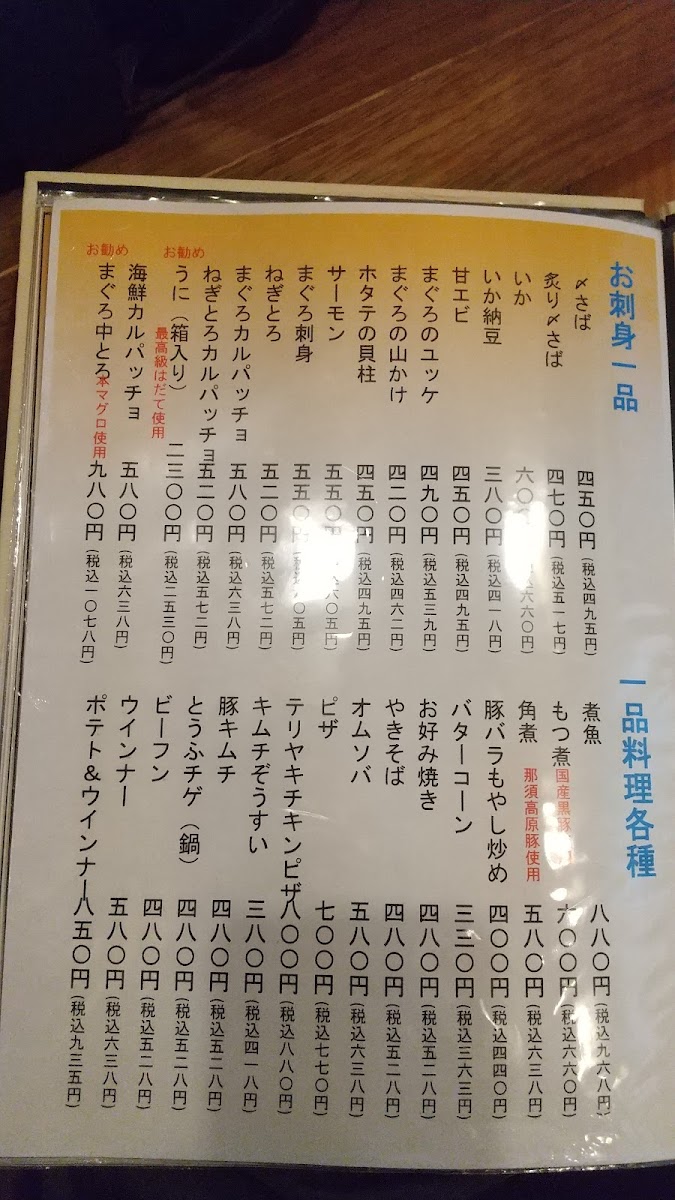 お刺身一品
〆さば 四五〇円(税込四九五円)
炙り〆さば 四七〇円(税込五一七円)
いか 六〇 六六〇円)
いか納豆 三八〇円(税込四一八円)
甘エビ 四五〇円(税込四九五円)
まぐろのユッケ 四九〇円(税込五三九円)
まぐろの山かけ 四二〇円(税込四六二円)
ホタテの貝柱 四五〇円(税込四九五円)
サーモン 五五〇円(税込六〇五円)
まぐろ刺身 五五〇円 〇五円)
ねぎとろ 五二〇円(税込五七二円)
まぐろカルパッチョ 五八〇円(税込六三八円)
ねぎとろカルパッチョ 五二〇円(税込五七二円)
お勧め
うに(箱入り) 二三〇〇円(税込二五三〇円)
最高級はだて使用
海鮮カルパッチョ 五八〇円(税込六三八円)
お勧め
まぐろ中とろ 九八〇円(税込一〇七八円)
本マグロ使用
一品料理各種
煮魚 八八〇円(税込九六八円)
もつ煮 六〇〇円(税込六六〇円)
国産黒豚
角煮 五八〇円(税込六三八円)
那須高原豚使用
豚バラもやし炒め 四〇〇円(税込四四〇円)
バターコーン 三三〇円(税込三六三円)
お好み焼き 四八〇円(税込五二八円)
やきそば 四八〇円(税込五二八円)
オムソバ 五八〇円(税込六三八円)
ピザ 七〇〇円(税込七七〇円)
テリヤキチキンピザ 八〇〇円(税込八八〇円)
キムチぞうすい 三八〇円(税込四一八円)
豚キムチ 四八〇円(税込五二八円)
とうふチゲ(鍋) 四八〇円(税込五二八円)
ビーフン 四八〇円(税込五二八円)
ウインナー 五八〇円(税込六三八円)
ポテト&ウインナー 八五〇円(税込九三五円)